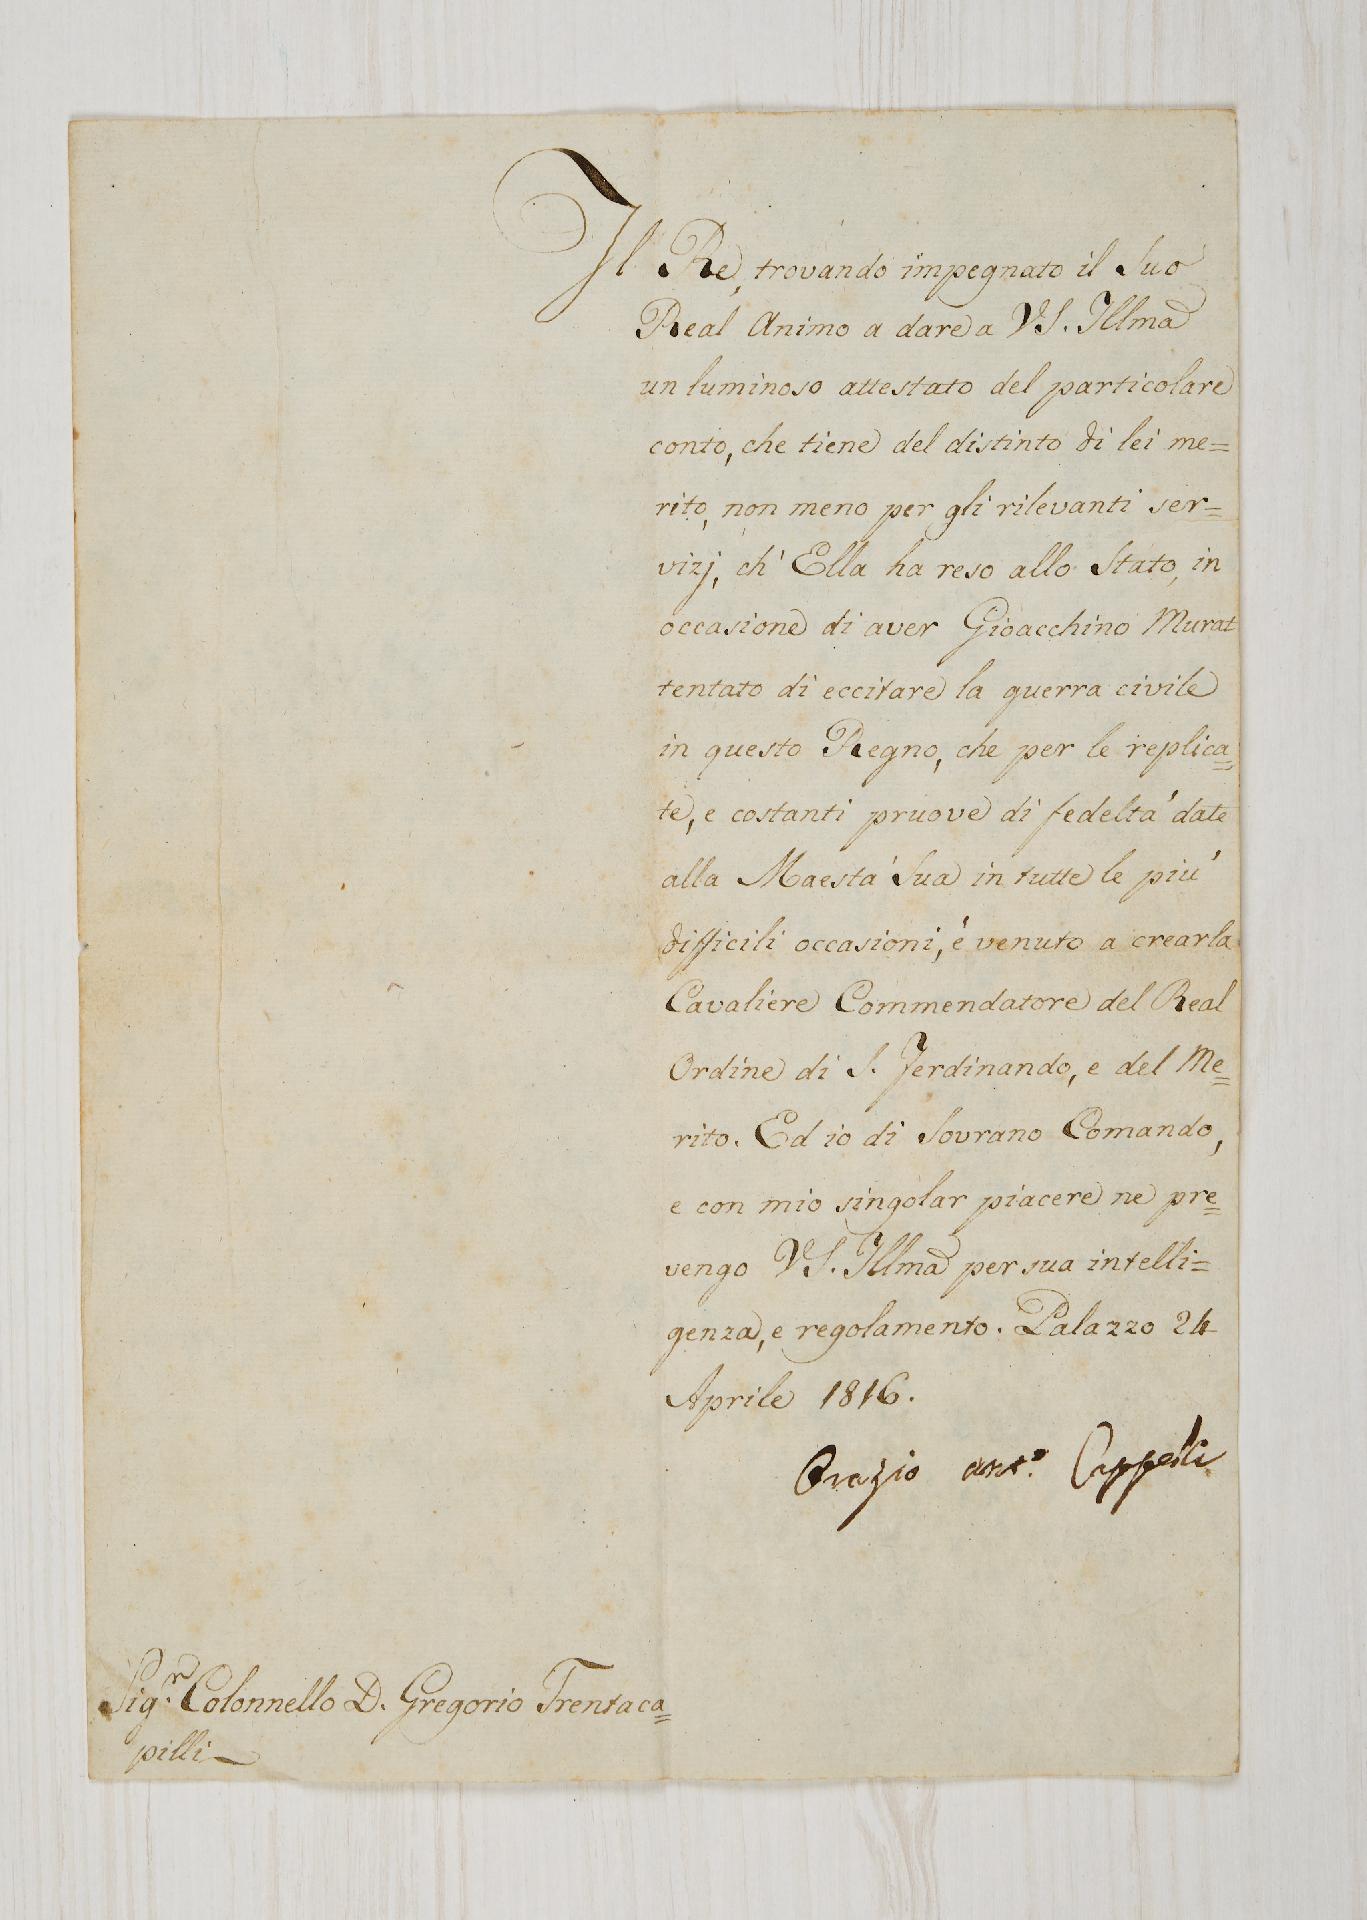 Il Re, trovando impegnato il Suo
Real Animo a dare a V.S. Illma
un luminoso attestato del particolare
conto, che tiene del distinto di lei me=
rito, non meno per gli rilevanti ser=
vizj, ch' Ella ha reso allo Stato, in
occasione di aver Gioacchino Murat
tentato di eccitare la guerra civile
in questo Regno, che per le replica=
te, e costanti pruove di fedeltá date
alla Maestá Sua in tutte le piú
difficili occasioni, é venuto a crearla
Cavaliere Commendatore del Real
Ordine di S. Ferdinando, e del Me=
rito. Ed io di Sovrano Comando,
e con mio singolar piacere ne pre=
vengo V.S. Illma per sua intelli=
genza, e regolamento. Palazzo 24
Aprile 1816.
Orazio Ant.º Cappelli
Sig.r Colonnello D. Gregorio Trentaca=
pilli